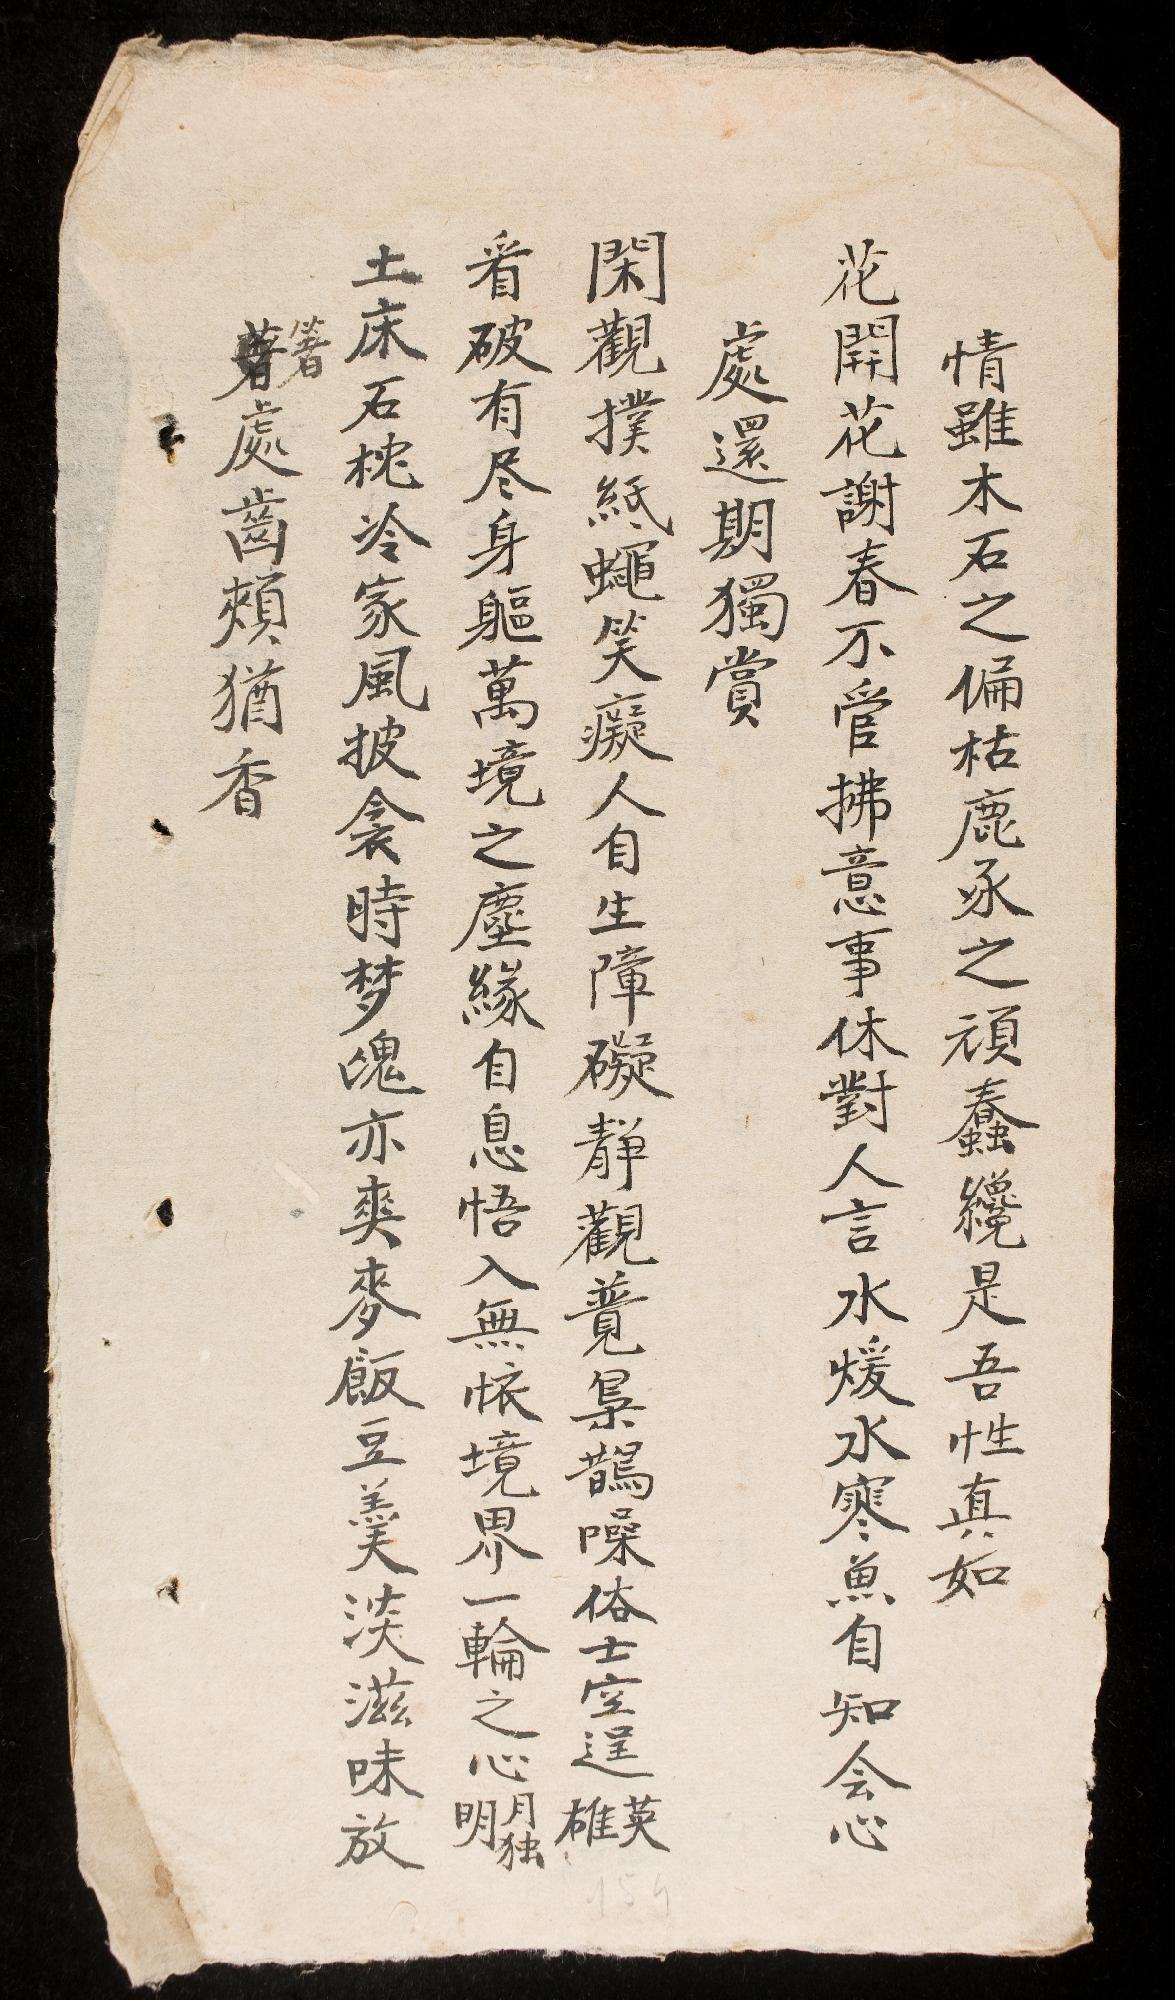 情雖木石之偏枯鹿豕之頑蠢纔是吾性真如
花開花謝春不管拂意事休對人言水煖水寒魚自知会心
處還期獨賞
閑觀撲紙蠅笑癡人自生障礙靜觀竟巢鵲噪俗士空逞英雄
看破有尽身軀萬境之塵緣自息悟入無懷境界一輪之心月独明
土床石枕冷家風披衾時梦魂亦爽麥飯豆羹淡滋味放
箸處齒頰猶香